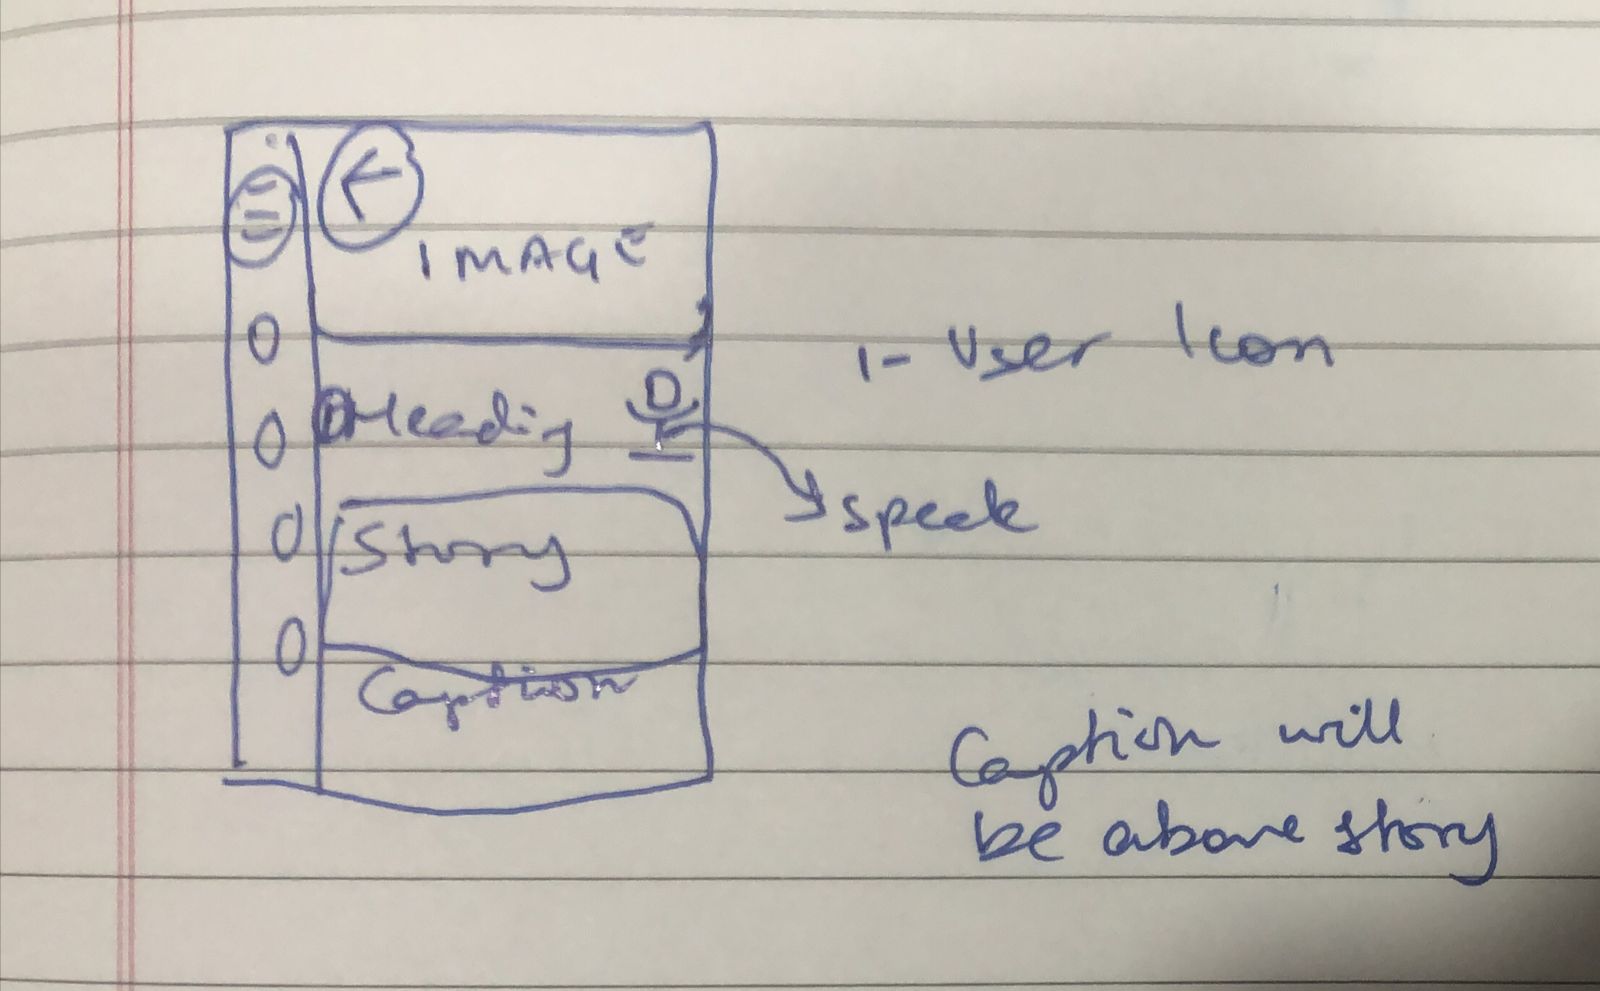 IMAGE
Heading
Story
Caption
1- User Icon
Speak
Caption will
be above story